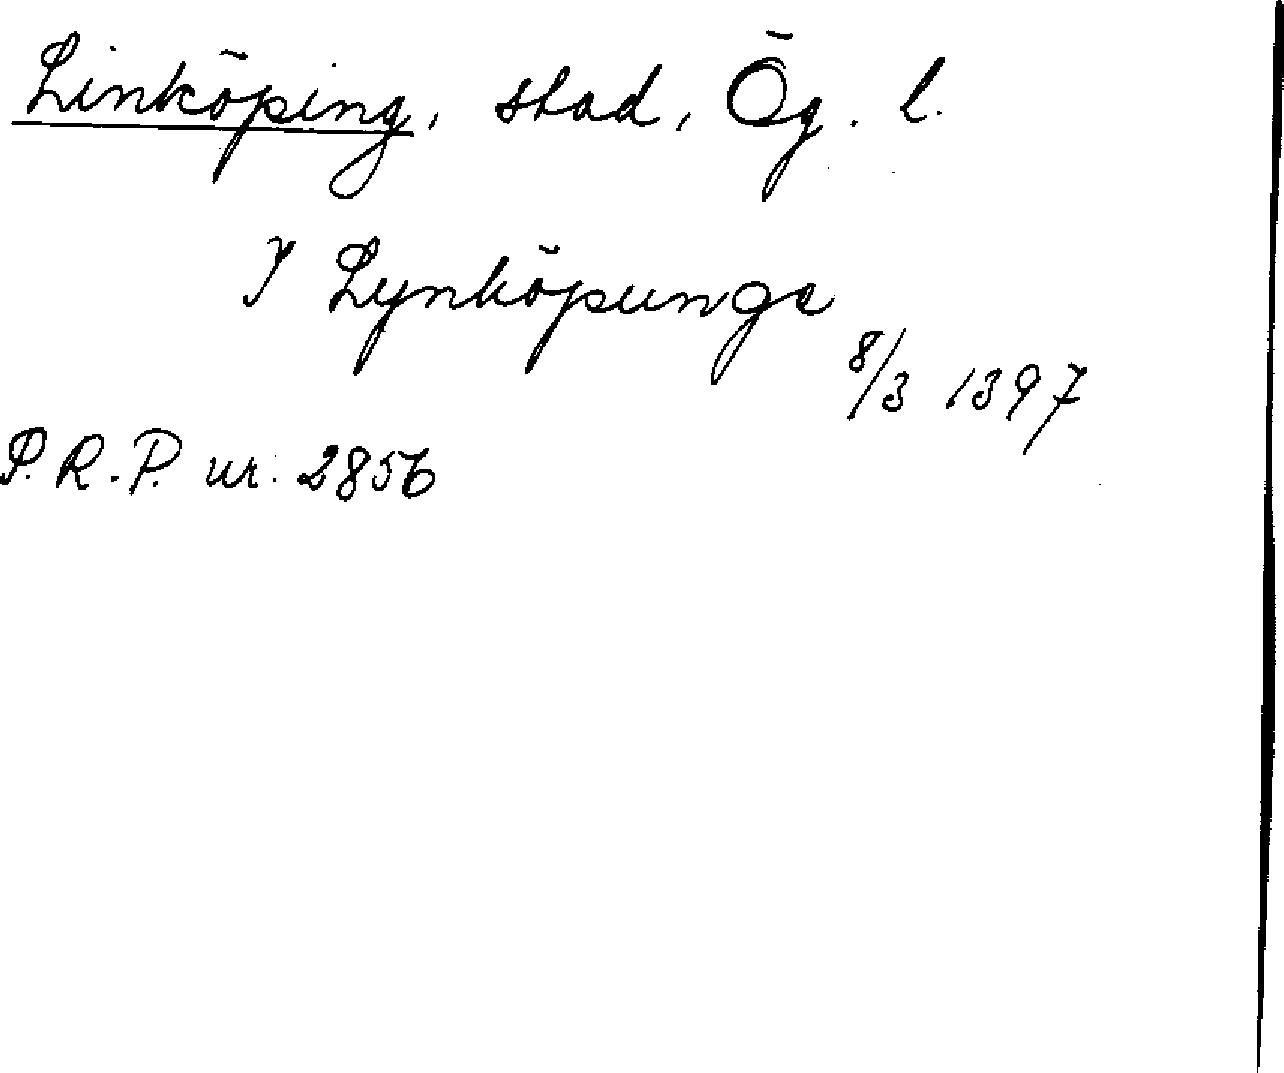 Linköping, stad, Ög. l.
J Lynköpunge
8/3 1397
P.R.P. nr. 2856